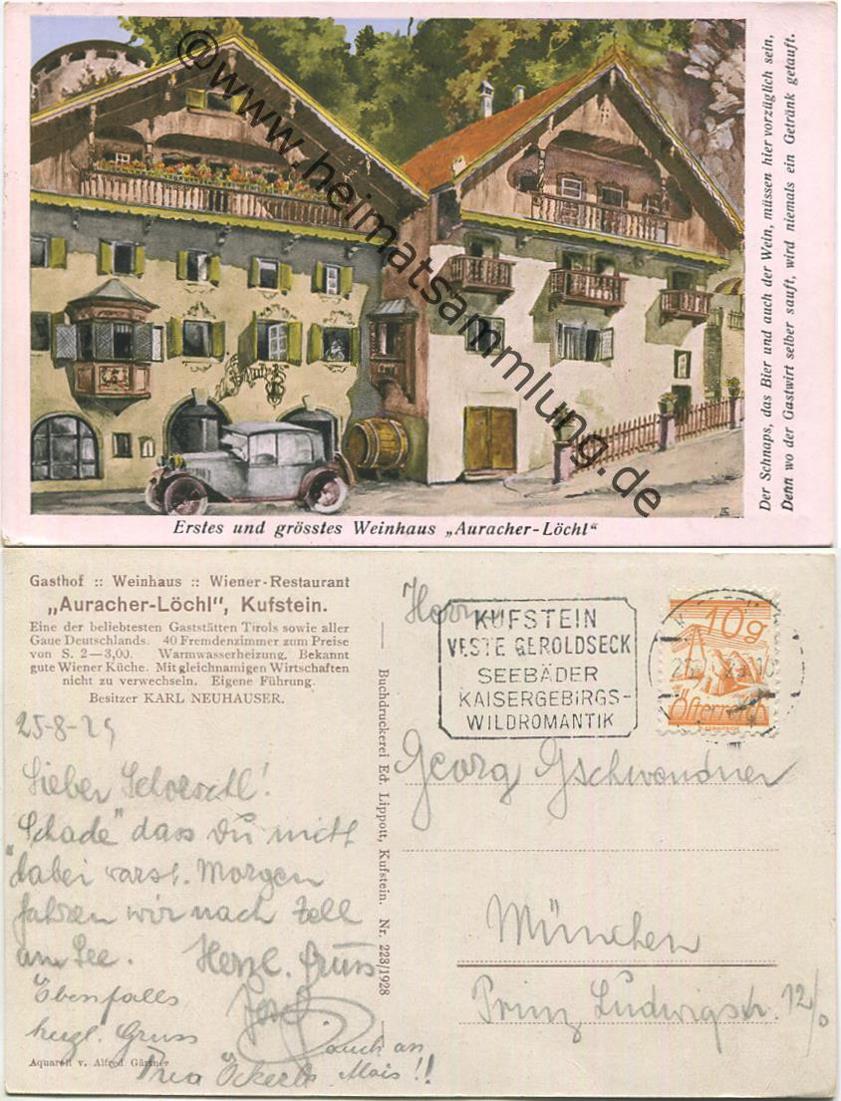 ©www.heimatsammlung.de
Erstes und grösstes Weinhaus „Auracher-Löchl“
Der Schnaps, das Bier und auch der Wein, müssen hier vorzüglich sein,
Denn wo der Gastwirt selber sauft, wird niemals ein Getränk getauft.
Gasthof :: Weinhaus :: Wiener-Restaurant
„Auracher-Löchl“, Kufstein.
Eine der beliebtesten Gaststätten Tirols sowie aller
Gaue Deutschlands. 40 Fremdenzimmer zum Preise
von S. 2—3,00. Warmwasserheizung. Bekannt
gute Wiener Küche. Mit gleichnamigen Wirtschaften
nicht zu verwechseln. Eigene Führung.
Besitzer KARL NEUHAUSER.
25-8-29
Lieber Schorschl!
"Schade" dass du nicht
dabei warst. Morgen
fahren wir nach Zell
am See. Herzl. Gruss
Josef
Ebenfalls
herzl. Gruss
auch an
Mais!!
Aquarell v. Alfred Gärtner
Buchdruckerei Ed. Lippott, Kufstein. Nr. 223/1928
KUFSTEIN
VESTE GEROLDSECK
SEEBÄDER
KAISERGEBIRGS-
WILDROMANTIK
10g
Österreich
Herrn
Georg Gschwendner
München
Prinz Ludwigstr. 12/0